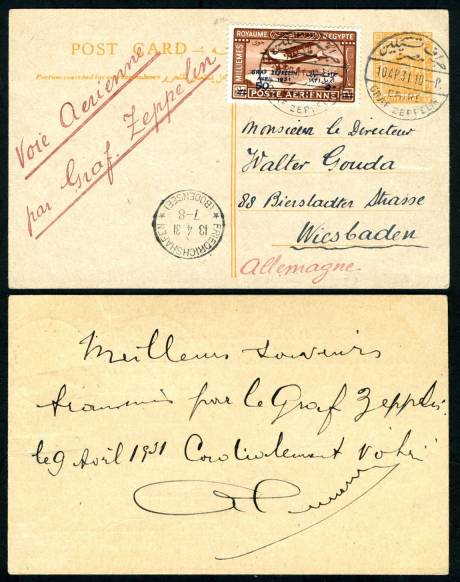 POST CARD
Voie Aerienne
par Graf. Zeppelin
ROYAUME D'EGYPTE
MILLIEMES
GRAF ZEPPELIN
AVRIL 1931
50
POSTE AERIENNE
10 AP. 31. 10
GRAF ZEPPELIN
Monsieur le Directeur
Walter Gouda
88 Bierstadter Strasse
Wiesbaden
Allemagne
FRIEDRICHSHAFEN
13 4 31
7-8
(BODENSEE)
Meilleurs souvenirs
transmis par le Graf Zeppelin
le 9 Avril 1931 Cordialement Votre